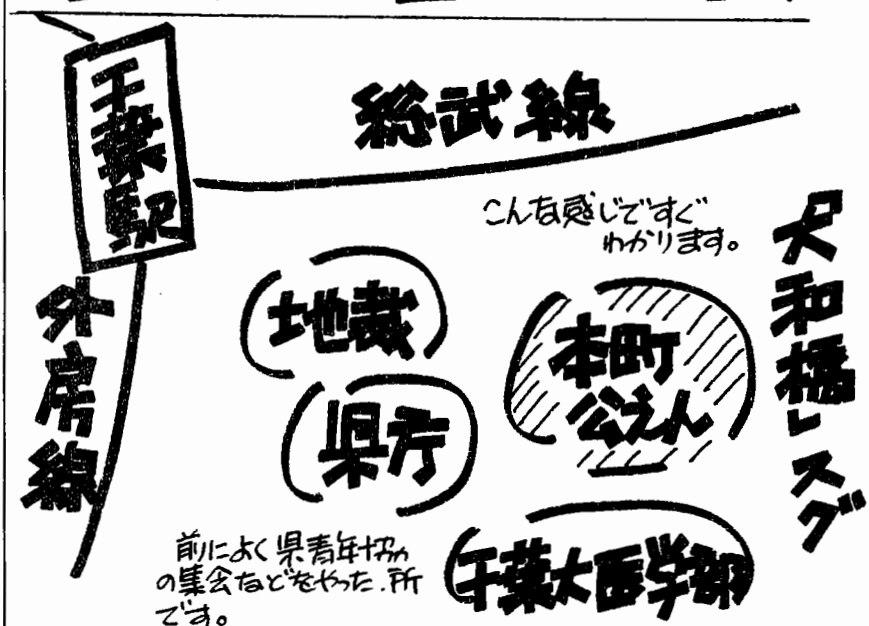 千葉駅
総武線
こんな感じですぐ
わかります。
外房線
地裁
本町
公えん
県庁
前によく県青年協
の集会などをやった所
です。
千葉大医学部